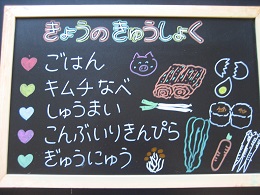 きょうのきゅうしょく
ごはん
キムチなべ
しゅうまい
こんぶいりきんぴら
ぎゅうにゅう